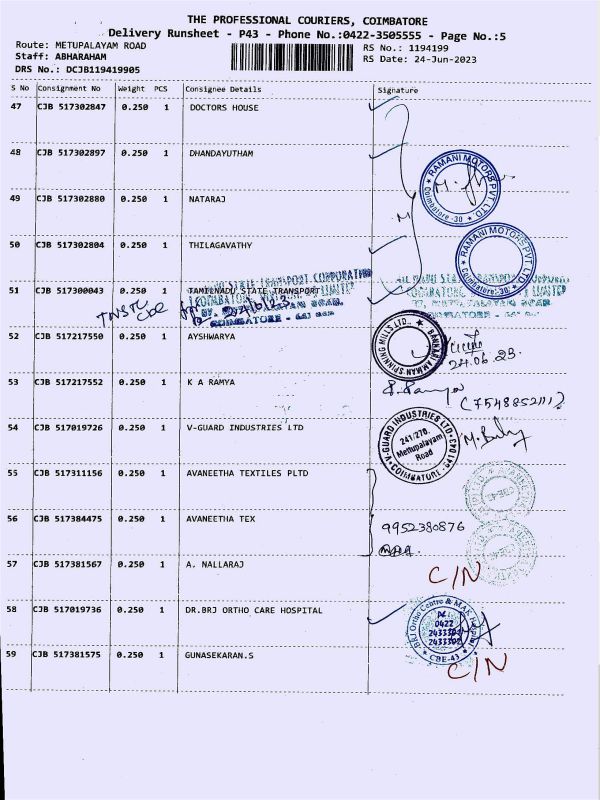 THE PROFESSIONAL COURIERS, COIMBATORE
Delivery Runsheet - P43 - Phone No.:0422-3505555 - Page No.:5
Route: METUPALAYAM ROAD RS No.: 1194199
Staff: ABHARAHAM RS Date: 24-Jun-2023
DRS No.: DCJB119419905
S No Consignment No Weight PCS Consignee Details Signature
47 CJB 517302847 0.250 1 DOCTORS HOUSE
48 CJB 517302897 0.250 1 DHANDAYUTHAM
RAMANI MOTORS PVT. LTD. Coimbatore-30
49 CJB 517302880 0.250 1 NATARAJ
50 CJB 517302804 0.250 1 THILAGAVATHY
RAMANI MOTORS PVT. LTD. Coimbatore-30
51 CJB 517300043 0.250 1 TAMILNADU STATE TRANSPORT
STATE TRANSPORT CORPORATION
LIMITED
COIMBATORE - 641
TNSTC
CBE
52 CJB 517217550 0.250 1 AYSHWARYA
BANNARI AMMAN SPINNING MILLS LTD.,
24.06.23.
53 CJB 517217552 0.250 1 K A RAMYA
Ramya
(7548852111)
54 CJB 517019726 0.250 1 V-GUARD INDUSTRIES LTD
V-GUARD INDUSTRIES LTD. COIMBATORE-641043
241/270.
Mettupalayam
Road
55 CJB 517311156 0.250 1 AVANEETHA TEXTILES PLTD
CBE-43
56 CJB 517384475 0.250 1 AVANEETHA TEX
9952380876
57 CJB 517381567 0.250 1 A. NALLARAJ
C/N
58 CJB 517019736 0.250 1 DR.BRJ ORTHO CARE HOSPITAL
BRJ Ortho Centre & MAK Hospital
0422
2433302
CBE-43
59 CJB 517381575 0.250 1 GUNASEKARAN.S
C/N